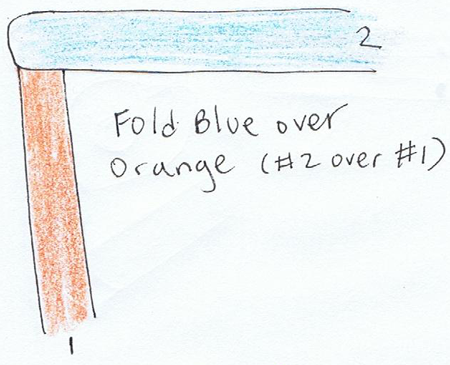 2
Fold Blue over
Orange (#2 over #1)
1